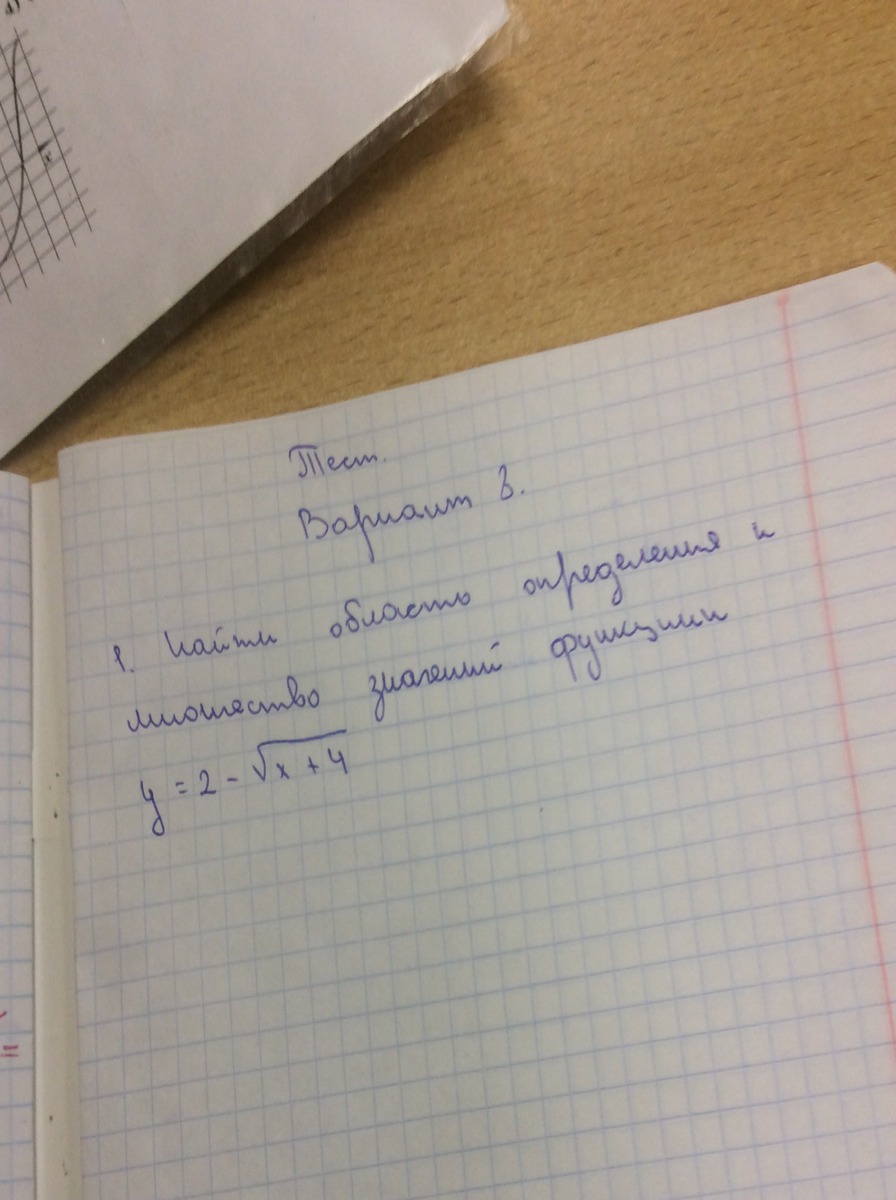 4)
x
Тест.
Вариант 3.
1. Найти область определения и
множество значений функции
y = 2 - √x + 4
=